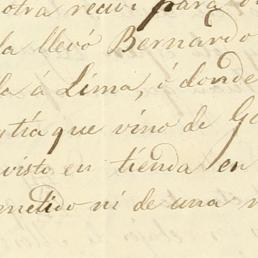 otra recivi para
la llevó Bernardo
la á Lima, ó donde
que vino de
visto en tienda en
metido ni de una